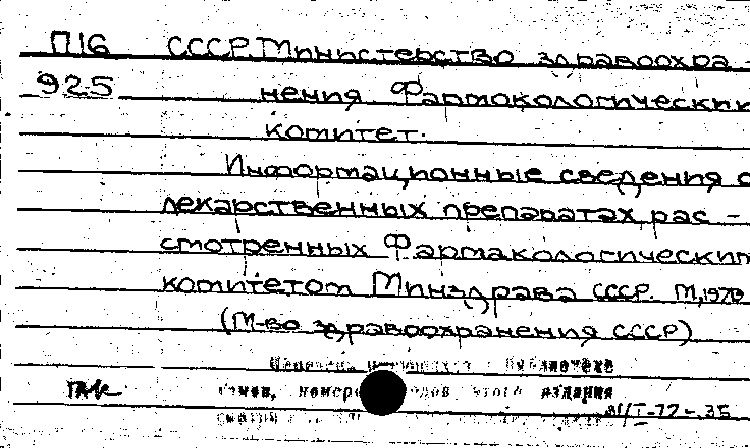 П16 СССР. Министерство здравоохра-
925 нения Фармакологический
комитет.
Информационные сведения о
лекарственных препаратах, рас-
смотренных Фармакологическим
комитетом Минздрава СССР. М, 1970
(М-во здравоохранения СССР)
имеющихся в библиотеке
томов, номеров годов этого издания